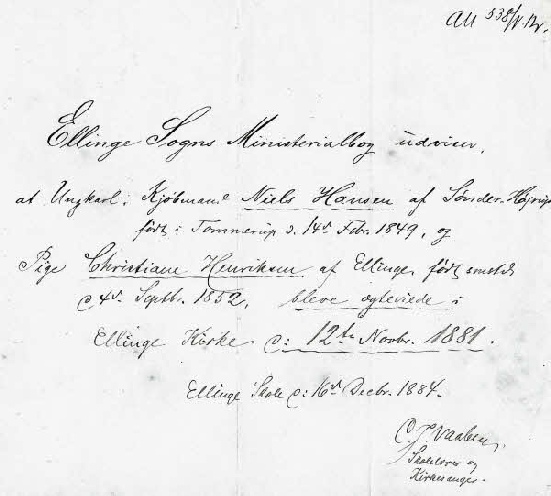 Ellinge Sogns Ministerialbog udviser,
at Ungkarl, Kjøbmand Niels Hansen af Sønder-Højrup
født i Tommerup d. 14de Febr. 1849, og
Pige Christiane Henriksen af Ellinge, født smstds
d 4de Septbr. 1852, bleve ægteviede i
Ellinge Kirke d: 12te Novbr. 1881.
Ellinge Skole d: 16de Decbr. 1884.
Skolelærer og
Kirkesanger.